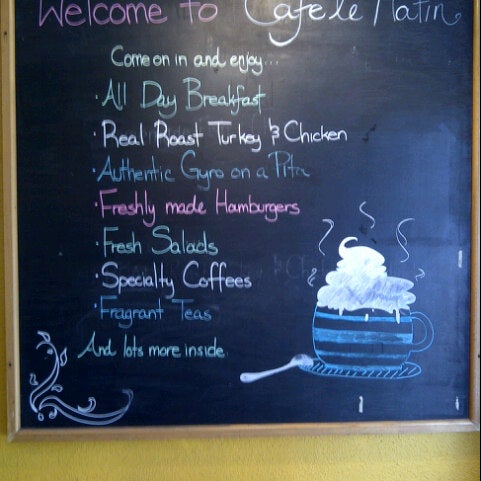 Welcome to Café le Matin
Come on in and enjoy...
· All Day Breakfast
· Real Roast Turkey & Chicken
· Authentic Gyro on a Pita
· Freshly made Hamburgers
· Fresh Salads
· Specialty Coffees
· Fragrant Teas
And lots more inside.